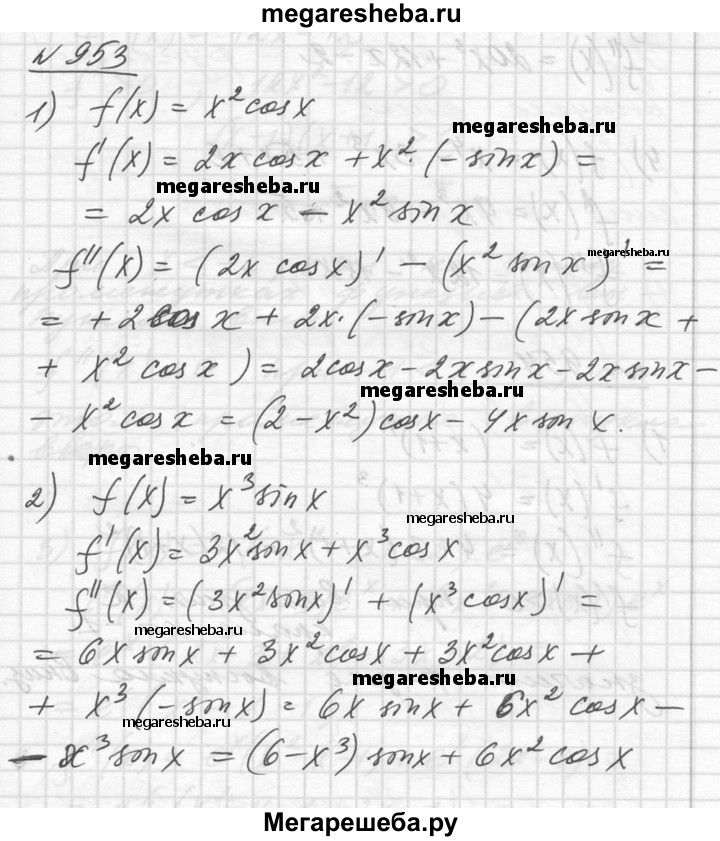 megaresheba.ru
№ 953
1) f(x) = x² cos x
megaresheba.ru
f'(x) = 2x cos x + x² · (-sin x) =
megaresheba.ru
= 2x cos x - x² sin x
megaresheba.ru
f''(x) = (2x cos x)' - (x² sin x)' =
= + 2 cos x + 2x · (-sin x) - (2x sin x +
+ x² cos x) = 2cos x - 2x sin x - 2x sin x -
megaresheba.ru
- x² cos x = (2 - x²) cos x - 4x sin x.
megaresheba.ru
2) f(x) = x³ sin x
megaresheba.ru
f'(x) = 3x² sin x + x³ cos x
f''(x) = (3x² sin x)' + (x³ cos x)' =
megaresheba.ru
= 6x sin x + 3x² cos x + 3x² cos x +
megaresheba.ru
+ x³ (-sin x) = 6x sin x + 6x² cos x -
megaresheba.ru
- x³ sin x = (6 - x³) sin x + 6x² cos x
Мегарешеба.ру